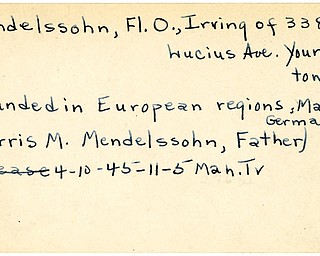 ndelssohn, Fl. O., Irving of 338
Lucius Ave. Your
ton
unded in European regions, Ma
Germa
rris M. Mendelssohn, Father)
ease 4-10-45-11-5 Mah. Tv